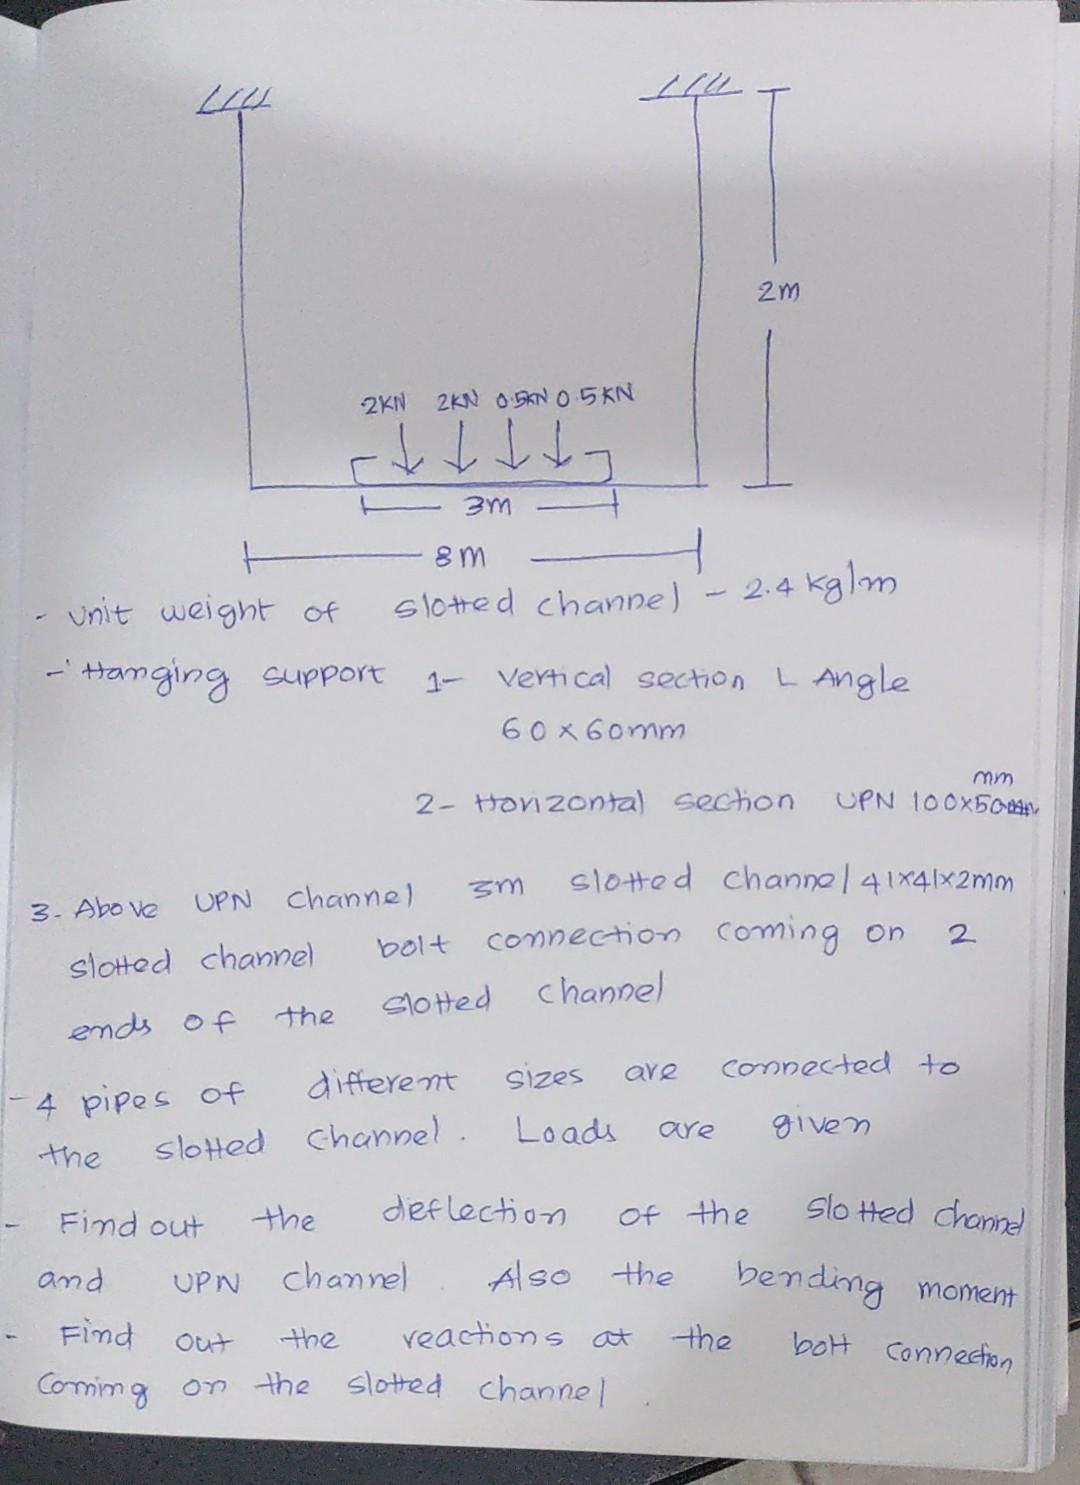 2KN 2KN 0.5KN 0.5KN
2m
3m
8m
- unit weight of slotted channel - 2.4 kg/m
- Hanging support 1- Vertical section L Angle
60 x 60mm
2- Horizontal section UPN 100x50 mm
3. Above UPN channel 3m slotted channel 41x41x2mm
slotted channel bolt connection coming on 2
ends of the slotted channel
- 4 pipes of different sizes are connected to
the slotted channel. Loads are given
- Find out the deflection of the slotted channel
and UPN channel. Also the bending moment
- Find out the reactions at the bolt connection
Coming on the slotted channel.